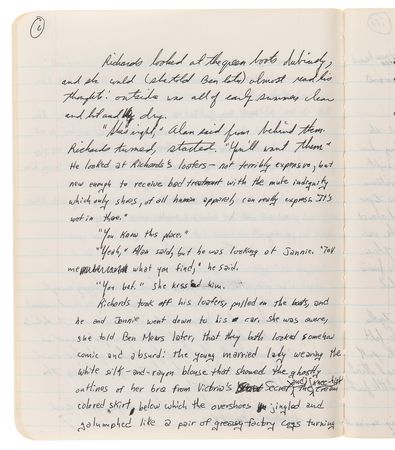 Richards looked at the green boots dubiously,
and she could (she told Ben later) almost read his
thoughts: outside was all of early summer, clear
and hot and dry.
"She's right," Alan said from behind them.
Richards turned, startled. "You'll want them."
He looked at Richards's loafers – not terribly expensive, but
new enough to receive bad treatment with the mute indignity
which only shoes, of all human apparel, can really express. "It's
wet in there."
"You know this place."
"Yeah," Alan said, but he was looking at Jannie. "Tell
me what you find," he said.
"You bet." She kissed him.
Richards took off his loafers, pulled on the boots, and
he and Jannie went down to his car. She was aware,
she told Ben Mears later, that they both looked somehow
comic and absurd: the young married lady wearing the
white silk-and-rayon blouse that showed the ghostly
outlines of her bra from Victoria's Secret and the cream
colored skirt, below which the overshoes jingled and
galumphed like a pair of greasy factory cogs turning